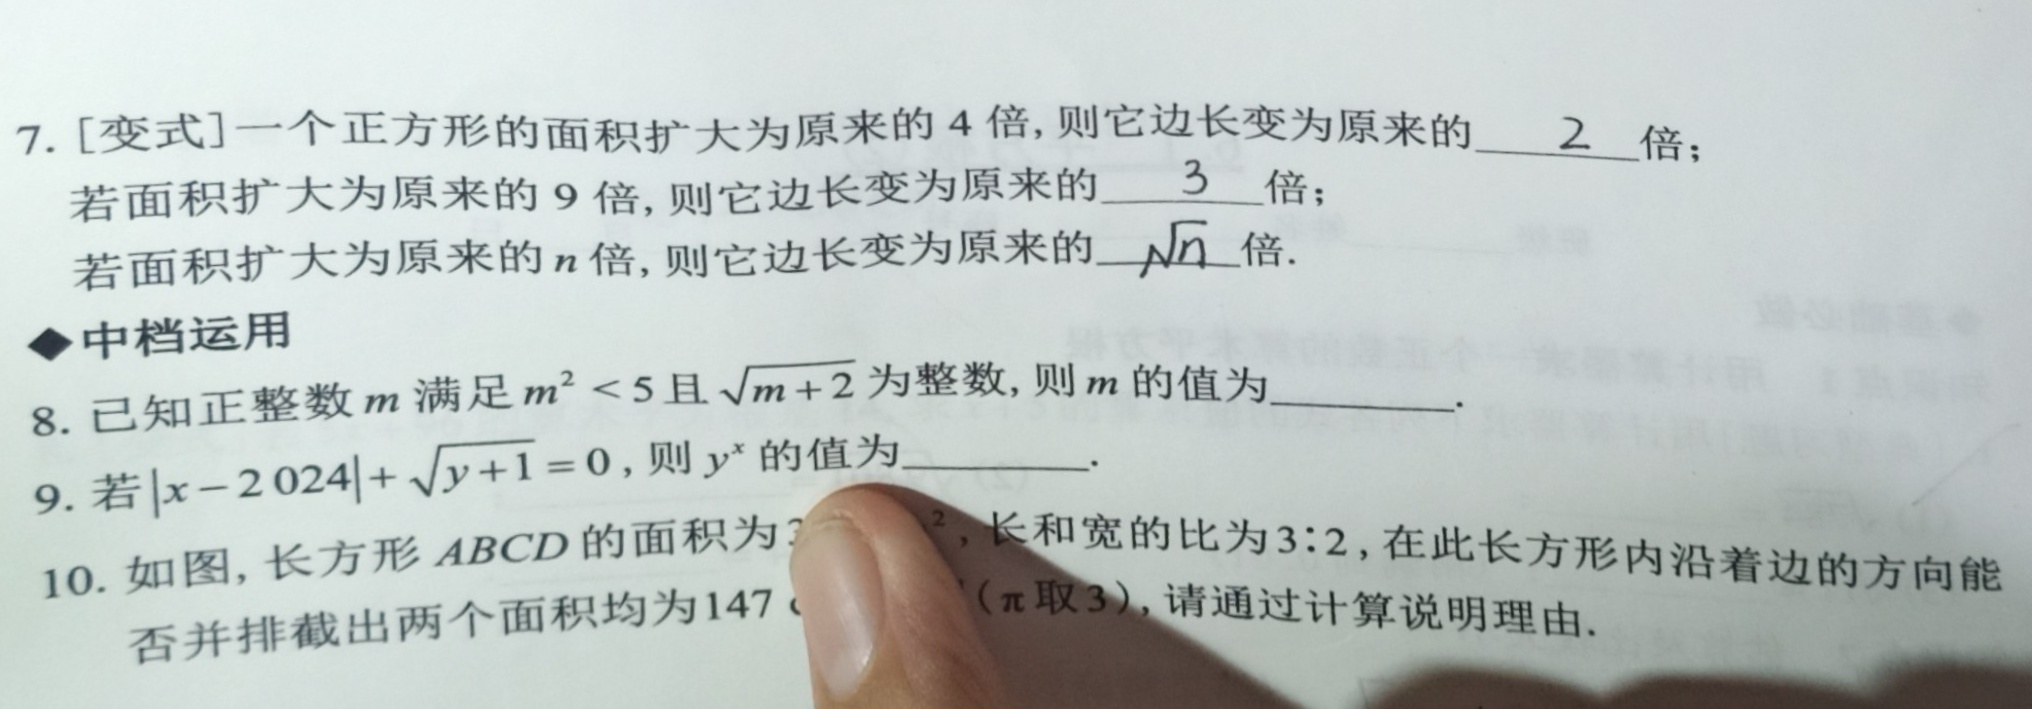 7. [变式]一个正方形的面积扩大为原来的 4 倍,则它边长变为原来的 2 倍;
若面积扩大为原来的 9 倍,则它边长变为原来的 3 倍;
若面积扩大为原来的 n 倍,则它边长变为原来的 √n 倍.
◆中档运用
8. 已知正整数 m 满足 m² < 5 且 √(m+2) 为整数,则 m 的值为______.
9. 若|x-2 024|+√(y+1)=0,则 yˣ 的值为______.
10. 如图,长方形 ABCD 的面积为 ²,长和宽的比为3:2,在此长方形内沿着边的方向能
否并排截出两个面积均为147 (π取3),请通过计算说明理由.